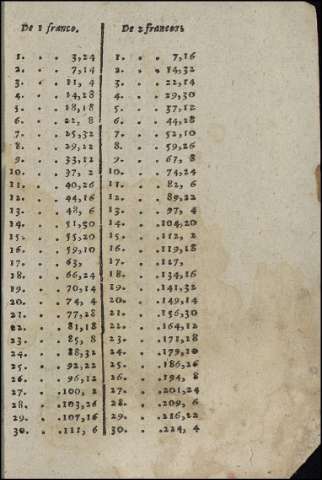 De 1 franco. De 2 francos.
1. . . 3,24 1. . . 7,16
2. . . 7,14 2. . . 14,32
3. . . 11, 4 3. . . 22,14
4. . . 14,28 4. . . 29,30
5. . . 18,18 5. . . 37,12
6. . . 22, 8 6. . . 44,28
7. . . 25,32 7. . . 52,10
8. . . 29,22 8. . . 59,26
9. . . 33,12 9. . . 67, 8
10. . . 37, 2 10. . . 74,24
11. . . 40,26 11. . . 82, 6
12. . . 44,16 12. . . 89,22
13. . . 48, 6 13. . . 97, 4
14. . . 51,30 14. . . 104,20
15. . . 55,20 15. . . 112, 2
16. . . 59,10 16. . . 119,18
17. . . 63, 17. . . 127,
18. . . 66,24 18. . . 134,16
19. . . 70,14 19. . . 141,32
20. . . 74, 4 20. . . 149,14
21. . . 77,28 21. . . 156,30
22. . . 81,18 22. . . 164,12
23. . . 85, 8 23. . . 171,28
24. . . 88,32 24. . . 179,10
25. . . 92,22 25. . . 186,26
26. . . 96,12 26. . . 194, 8
27. . . 100, 2 27. . . 201,24
28. . . 103,26 28. . . 209, 6
29. . . 107,16 29. . . 216,22
30. . . 111, 6 30. . . 224, 4